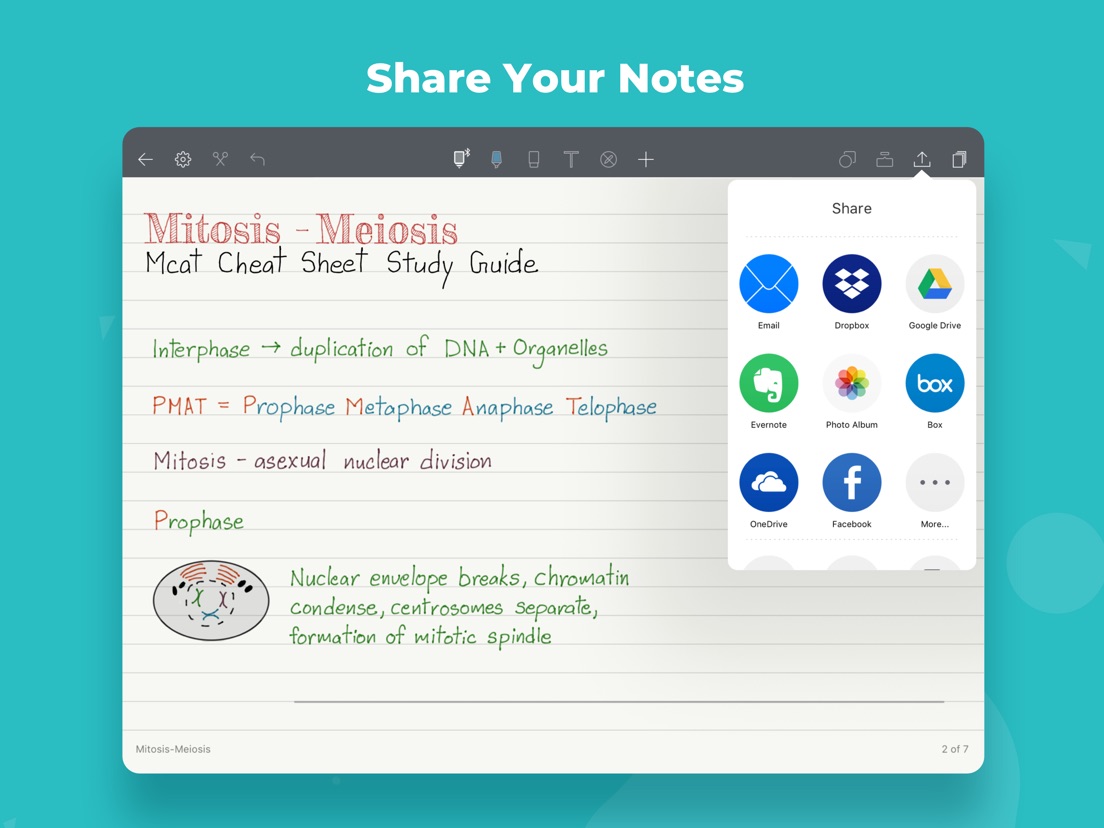 Share Your Notes
Share
Mitosis - Meiosis
Mcat Cheat Sheet Study Guide
Email
Dropbox
Google Drive
Interphase → duplication of DNA + Organelles
PMAT = Prophase Metaphase Anaphase Telophase
box
Evernote
Photo Album
Box
Mitosis - asexual nuclear division
Prophase
f
OneDrive
Facebook
More...
Nuclear envelope breaks, chromatin
condense, centrosomes separate,
formation of mitotic spindle
Mitosis-Meiosis
2 of 7